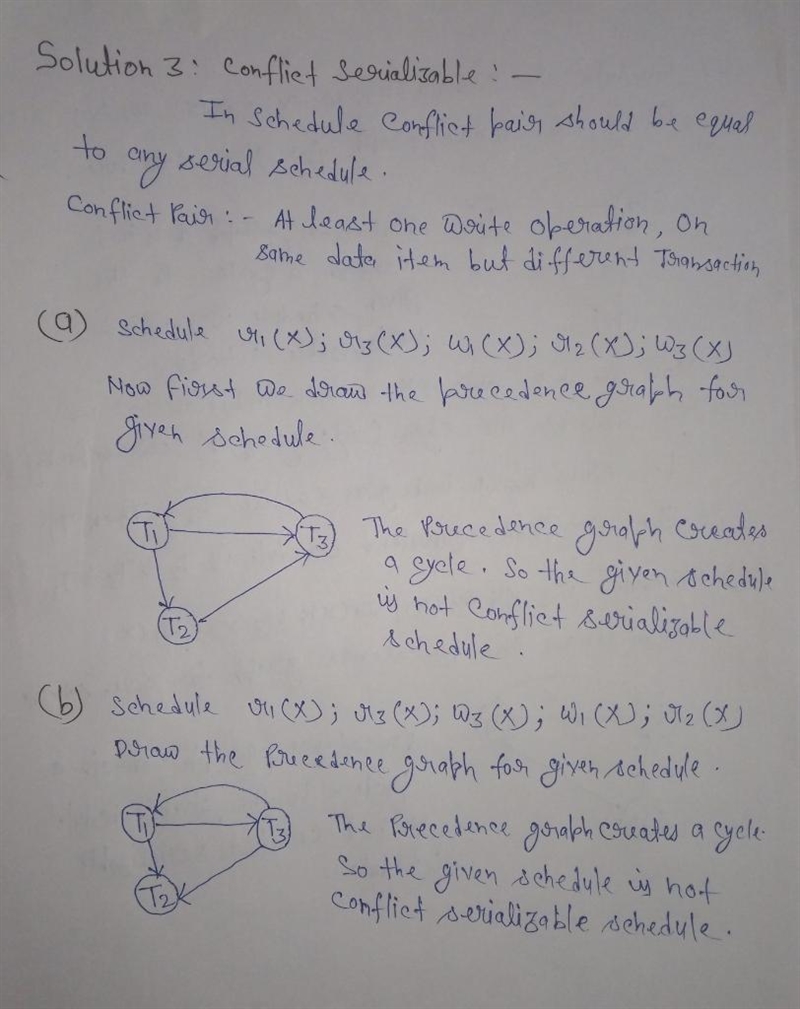 Solution 3: Conflict Serializable: —
In Schedule Conflict pair should be equal
to any serial schedule.
Conflict Pair :- At least one Write operation, On
same data item but different Transaction
(a) Schedule r1(X); r3(X); W1(X); r2(X); W3(X)
Now first We draw the precedence graph for
given schedule.
T1
T3
T2
The Precedence graph Creates
a cycle. So the given schedule
is not Conflict serializable
schedule.
(b) Schedule r1(X); r3(X); W3(X); W1(X); r2(X)
Draw the Precedence graph for given schedule.
T1
T3
T2
The Precedence graph creates a cycle.
So the given schedule is not
Conflict serializable schedule.